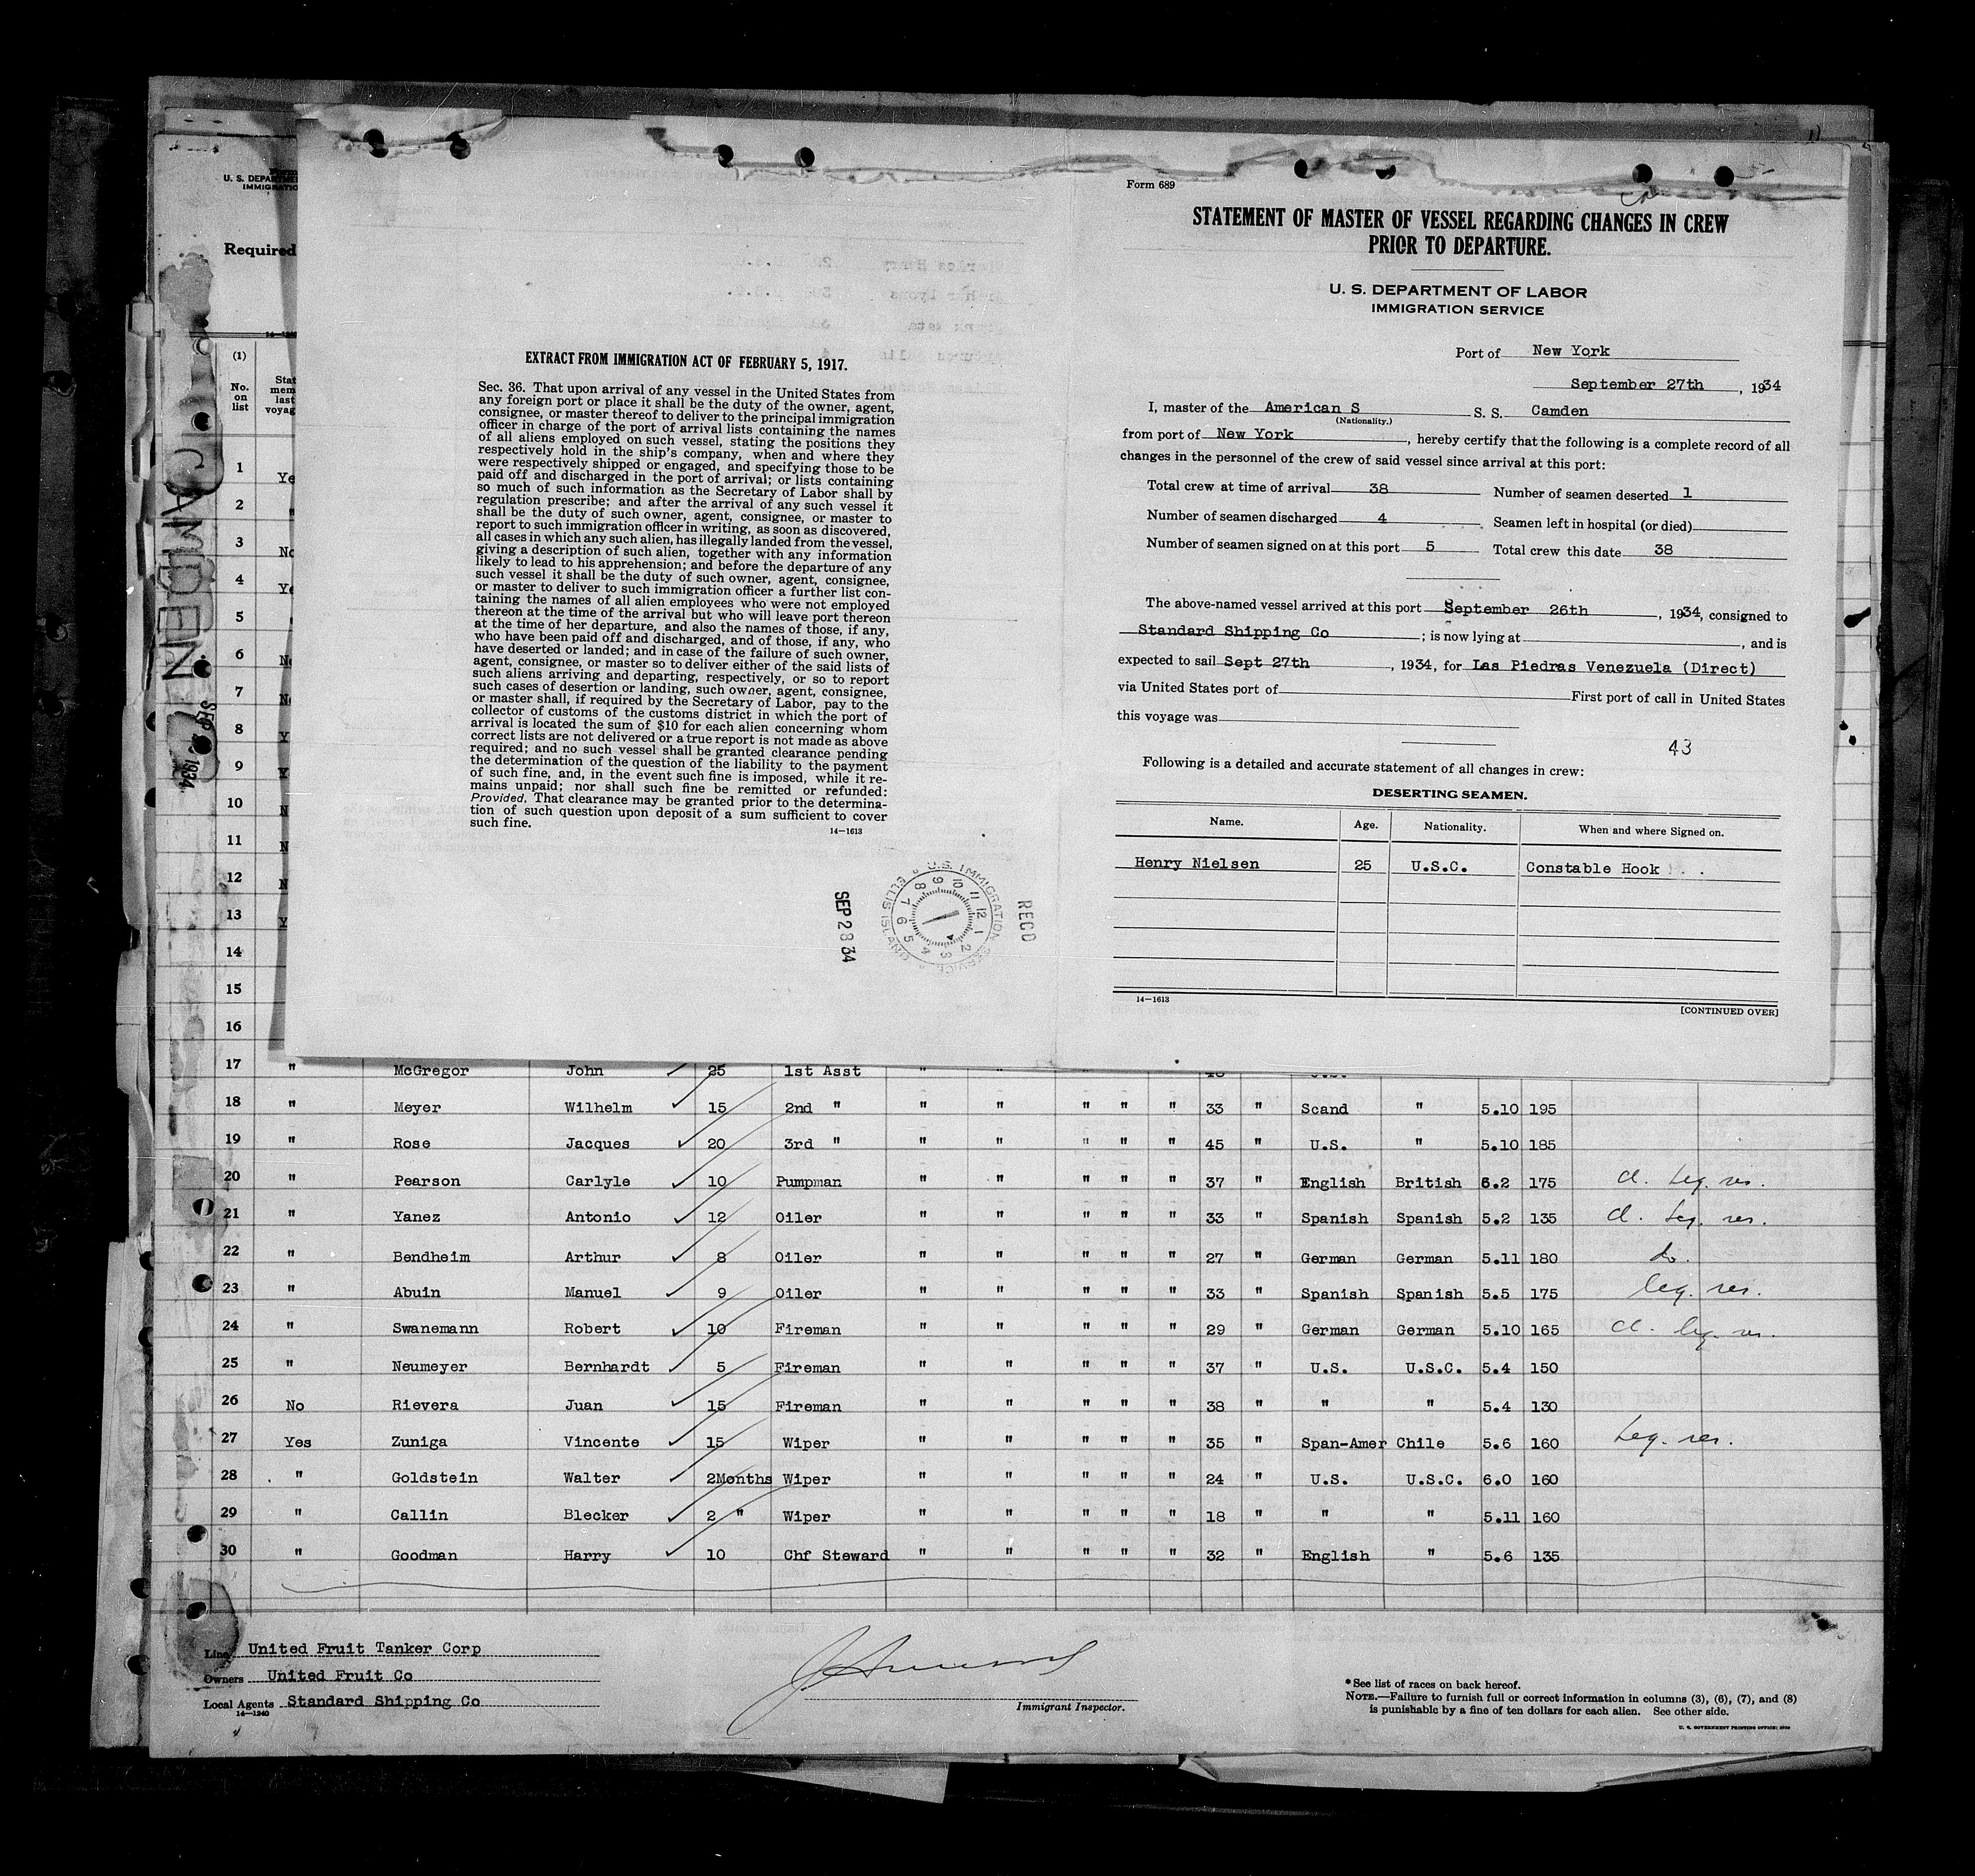 Form 689
STATEMENT OF MASTER OF VESSEL REGARDING CHANGES IN CREW
PRIOR TO DEPARTURE.
U. S. DEPARTMENT OF LABOR
IMMIGRATION SERVICE
Port of New York
September 27th, 1934
I, master of the American S S. S. Camden
(Nationality.)
from port of New York, hereby certify that the following is a complete record of all
changes in the personnel of the crew of said vessel since arrival at this port:
Total crew at time of arrival 38 Number of seamen deserted 1
Number of seamen discharged 4 Seamen left in hospital (or died)
Number of seamen signed on at this port 5 Total crew this date 38
The above-named vessel arrived at this port September 26th, 1934, consigned to
Standard Shipping Co; is now lying at , and is
expected to sail Sept 27th, 1934, for Las Piedras Venezuela (Direct)
via United States port of First port of call in United States
this voyage was
43
Following is a detailed and accurate statement of all changes in crew:
DESERTING SEAMEN.
Name. Age. Nationality. When and where Signed on.
Henry Nielsen 25 U.S.C. Constable Hook
14—1613
[CONTINUED OVER]
EXTRACT FROM IMMIGRATION ACT OF FEBRUARY 5, 1917.
Sec. 36. That upon arrival of any vessel in the United States from
any foreign port or place it shall be the duty of the owner, agent,
consignee, or master thereof to deliver to the principal immigration
officer in charge of the port of arrival lists containing the names
of all aliens employed on such vessel, stating the positions they
respectively hold in the ship's company, when and where they
were respectively shipped or engaged, and specifying those to be
paid off and discharged in the port of arrival; or lists containing
so much of such information as the Secretary of Labor shall by
regulation prescribe; and after the arrival of any such vessel it
shall be the duty of such owner, agent, consignee, or master to
report to such immigration officer in writing, as soon as discovered,
all cases in which any such alien, has illegally landed from the vessel,
giving a description of such alien, together with any information
likely to lead to his apprehension; and before the departure of any
such vessel it shall be the duty of such owner, agent, consignee,
or master to deliver to such immigration officer a further list con-
taining the names of all alien employees who were not employed
thereon at the time of the arrival but who will leave port thereon
at the time of her departure, and also the names of those, if any,
who have been paid off and discharged, and of those, if any, who
have deserted or landed; and in case of the failure of such owner,
agent, consignee, or master so to deliver either of the said lists of
such aliens arriving and departing, respectively, or so to report
such cases of desertion or landing, such owner, agent, consignee,
or master shall, if required by the Secretary of Labor, pay to the
collector of customs of the customs district in which the port of
arrival is located the sum of $10 for each alien concerning whom
correct lists are not delivered or a true report is not made as above
required; and no such vessel shall be granted clearance pending
the determination of the question of the liability to the payment
of such fine, and, in the event such fine is imposed, while it re-
mains unpaid; nor shall such fine be remitted or refunded:
Provided, That clearance may be granted prior to the determina-
tion of such question upon deposit of a sum sufficient to cover
such fine.
14—1613
SEP 28 34
U.S. IMMIGRATION SERVICE ELLIS ISLAND
1 2 3 4 5 6 7 8 9 10 11 12
RECD
U. S. DEPARTME
IMMIGRATIO
Required
14—1240
CAMDEN
SEP 1934
(1)
No.
on
list
Stat
mem
last
voyag
1 Ye
2
3 No
4 Ye
5
6 No
7 No
8 Y
9 Y
10 N
11 N
12 N
13 Y
14
15
16
17 " McGregor John 25 1st Asst " "
18 " Meyer Wilhelm 15 2nd " " " " " " 33 " Scand " 5.10 195
19 " Rose Jacques 20 3rd " " " " " " 45 " U.S. " 5.10 185
20 " Pearson Carlyle 10 Pumpman " " " " " 37 " English British 6.2 175 cl. leg. res.
21 " Yanez Antonio 12 Oiler " " " " " 33 " Spanish Spanish 5.2 135 cl. leg. res.
22 " Bendheim Arthur 8 Oiler " " " " " 27 " German German 5.11 180 do.
23 " Abuin Manuel 9 Oiler " " " " " 33 " Spanish Spanish 5.5 175 leg. res.
24 " Swanemann Robert 10 Fireman " " " " " 29 " German German 5.10 165 cl. leg. res.
25 " Neumeyer Bernhardt 5 Fireman " " " " " 37 " U.S. U.S.C. 5.4 150
26 No Rievera Juan 15 Fireman " " " " " 38 " " " 5.4 130
27 Yes Zuniga Vincente 15 Wiper " " " " " 35 " Span-Amer Chile 5.6 160 leg. res.
28 " Goldstein Walter 2Months Wiper " " " " " 24 " U.S. U.S.C. 6.0 160
29 " Callin Blecker 2 " Wiper " " " " " 18 " " " 5.11 160
30 " Goodman Harry 10 Chf Steward " " " " " 32 " English " 5.6 135
Line United Fruit Tanker Corp
Owners United Fruit Co
Local Agents Standard Shipping Co
14—1240
Immigrant Inspector.
*See list of races on back hereof.
NOTE.—Failure to furnish full or correct information in columns (3), (6), (7), and (8)
is punishable by a fine of ten dollars for each alien. See other side.
U. S. GOVERNMENT PRINTING OFFICE: 1930